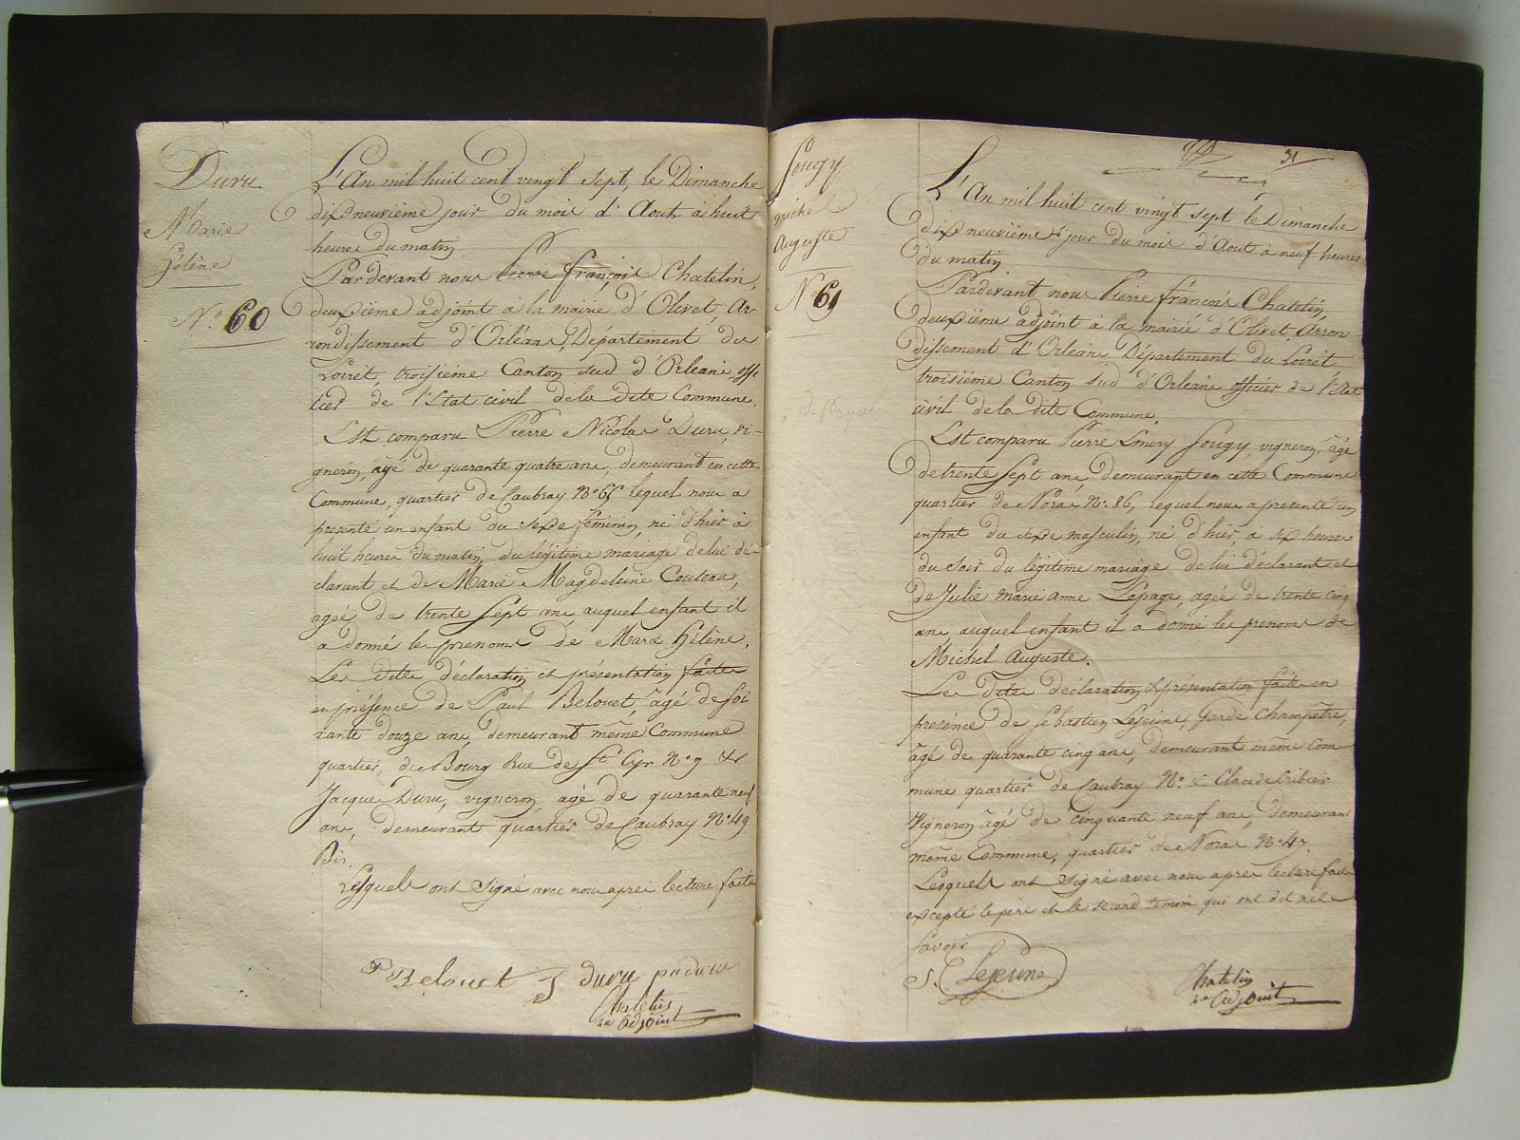 Duru
Marie
hélène
N.º 60
L'An mil huit cent vingt sept, le Dimanche
dix neuvième jour du mois d'Aout à huit
heures du matin
Pardevant nous Pierre françois Chatelin,
deuxième adjoint à la mairie d'Olivet, Ar-
rondissement d'Orléans, Département du
Loiret, troisième Canton Sud d'Orléans offi-
cier de l'Etat civil de la dite Commune.
Est comparu Pierre Nicolas Duru, vi-
gneron, âgé de quarante quatre ans, demeurant en cette
Commune, quartier de Caubray Nº lequel nous a
présenté un enfant du sexe féminin, né d'hier à
huit heures du matin, du légitime mariage de lui dé-
clarant et de Marie Magdeleine Couteau,
agée de trente sept ans, auquel enfant il
a donné les prenoms de Marie hélène.
Les dites déclaration et présentation faites
en présence de Paul Belouet, âgé de soi
xante douze ans, demeurant même Commune
quartier du Bourg Rue de St Cyr Nº 9 &
Jacques Duru, vigneron âgé de quarante neuf
ans, demeurant quartier de Caubray Nº 49
Bis.
Lesquels ont signé avec nous après lecture faite
P Belouet J duru pn duru
Chatelin
adjoint
Sougy
michel
Auguste
Nº 61
31
L'An mil huit cent vingt sept le Dimanche
dix neuvième jour du mois d'Aout à neuf heures
du matin
Pardevant nous Pierre françois Chatelin,
deuxième adjoint à la mairie d'Olivet Arron-
dissement d'Orléans Département du Loiret
troisième Canton Sud d'Orléans officier de l'Etat
civil de la dite Commune.
Est comparu Pierre Sougy, vigneron, âgé
de trente sept ans, demeurant en cette Commune
quartier de Noras Nº 86, lequel nous a présenté un
enfant du sexe masculin, né d'hier, à six heures
du soir du légitime mariage de lui déclarant et
de Julie marie anne Lepage, agée de trente cinq
ans, auquel enfant il a donné les prenoms de
Michel Auguste.
Les dites déclaration & présentation faites en
présence de Sébastien Lejeune, Garde Champêtre,
âgé de quarante cinq ans, demeurant même Com
mune quartier de Caubray Nº & Claude
Vigneron âgé de cinquante neuf ans, demeurant
même Commune, quartier de Noras Nº 47.
Lesquels ont signé avec nous après lecture faite
excepté le père et le second témoin qui ont dit ne le
savoir
S. Lejeune
Chatelin
adjoint